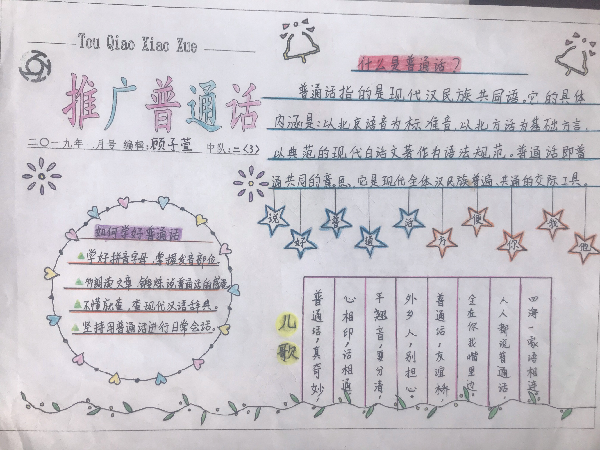 Tou Qiao Xiao Xue
推广普通话
二〇一九年 月号 编辑:顾子萱 中队:二<3>
什么是普通话?
普通话指的是现代汉民族共同语,它的具体
内涵是:以北京语音为标准音,以北方话为基础方言,
以典范的现代白话文著作为语法规范。普通话即普
通共同的意思,它是现代全体汉民族普遍、共通的交际工具。
说好普通话方便你我他
如何学好普通话
学好拼音字母,掌握发音部位。
不懂就查,查现代汉语辞典。
坚持用普通话进行日常会话。
儿歌
四海一家语相连
人人都说普通话,
全在你我嘴里边,
普通话,友谊桥,
外乡人,别担心,
平翘音,要分清,
心相印,话相通
普通话,真奇妙,